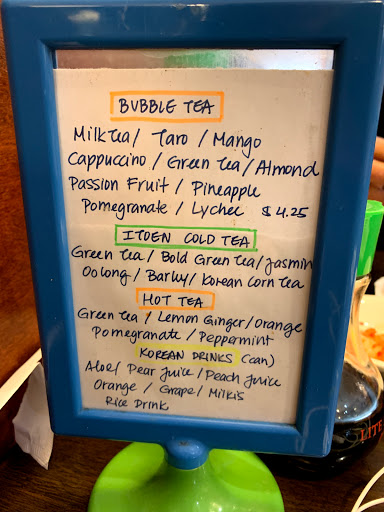 BUBBLE TEA
Milk tea / Taro / Mango
Cappuccino / Green tea / Almond
Passion Fruit / Pineapple
Pomegranate / Lychee $4.25
ITOEN COLD TEA
Green tea / Bold Green tea / Jasmin
Oolong / Barley / Korean Corn tea
HOT TEA
Green tea / Lemon Ginger / Orange
Pomegranate / Peppermint
KOREAN DRINKS (can)
Aloe / Pear juice / Peach juice
Orange / Grape / Milkis
Rice Drink
LITE